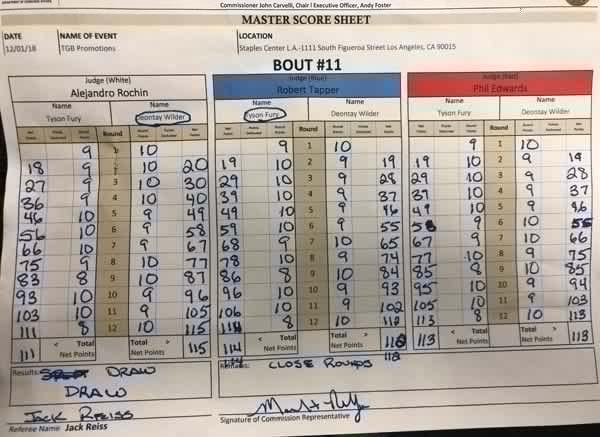 Commissioner John Carvelli, Chair I Executive Officer, Andy Foster
MASTER SCORE SHEET
DATE NAME OF EVENT LOCATION
12/01/18 TGB Promotions Staples Center L.A.-1111 South Figueroa Street Los Angeles, CA 90015
BOUT #11
Judge (White) Judge (Blue) Judge (Red)
Alejandro Rochin Robert Tapper Phil Edwards
Name Name Name Name Name Name
Tyson Fury Deontay Wilder Tyson Fury Deontay Wilder Tyson Fury Deontay Wilder
Round Round Round
9 1 10 9 1 10 9 1 10
18 9 2 10 20 19 10 2 9 19 19 10 2 9 19
27 9 3 10 30 29 10 3 9 28 29 10 3 9 28
36 9 4 10 40 39 10 4 9 37 39 10 4 9 37
46 10 5 9 49 49 10 5 9 46 49 10 5 9 46
56 10 6 9 58 59 10 6 9 55 58 9 6
66 10 7 9 67 68 9 7 10 65 67 9 7 10 66
75 9 8 10 77 78 10 8 9 74 77 10 8 9 75
83 8 9 10 87 86 8 9 10 84 85 8 9 10 85
93 10 10 9 96 96 10 10 9 93 95 10 10 9 94
103 10 11 9 105 106 10 11 9 102 105 10 11 9 103
111 8 12 10 115 8 12 10 112 113 8 12 10 113
111 < Total Net Points > 115 114 < Total Net Points > 113 < Total Net Points > 113
Results: DRAW Remarks: CLOSE ROUNDS
DRAW
Jack Reiss
Referee Name Jack Reiss Signature of Commission Representative